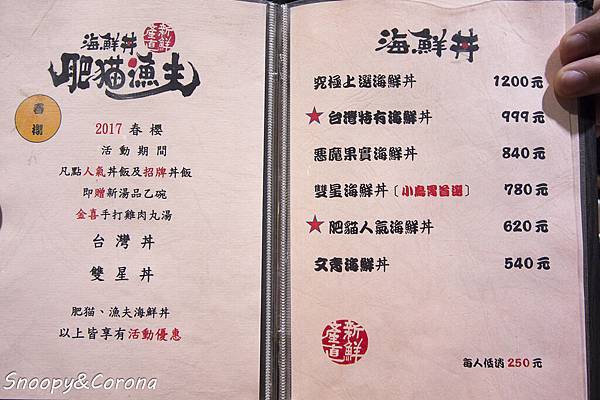 新鮮
產直
海鮮丼
肥猫漁夫
春櫻
2017 春櫻
活動期間
凡點人氣丼飯及招牌丼飯
即贈新湯品乙碗
金喜手打雞肉丸湯
台灣丼
雙星丼
肥猫、漁夫海鮮丼
以上皆享有活動優惠
海鮮丼
究極上選海鮮丼 1200元
★台灣特有海鮮丼 999元
惡魔果實海鮮丼 840元
雙星海鮮丼〔小鳥胃首選〕 780元
★肥貓人氣海鮮丼 620元
文青海鮮丼 540元
新鮮
產直
每人低消 250元
Snoopy&Corona